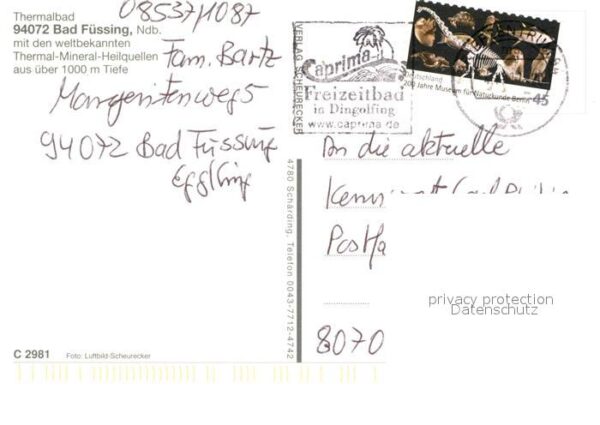 08537/1087
Thermalbad
94072 Bad Füssing, Ndb.
mit den weltbekannten
Thermal-Mineral-Heilquellen
aus über 1000 m Tiefe
Fam. Bartz
Margeritenweg 5
94072 Bad Füssing
Egglfing
VERLAG SCHEURECKER
4780 Schärding, Telefon 0043-7712-4742
Caprima
Freizeitbad
in Dingolfing
www.caprima.de
Deutschland
200 Jahre Museum für Naturkunde Berlin
45
An die aktuelle
Postfa
8070
privacy protection
Datenschutz
C 2981
Foto: Luftbild-Scheurecker